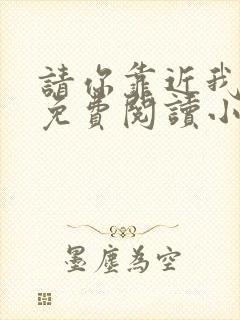 請你靠近我
免費閱讀小
墨塵為空